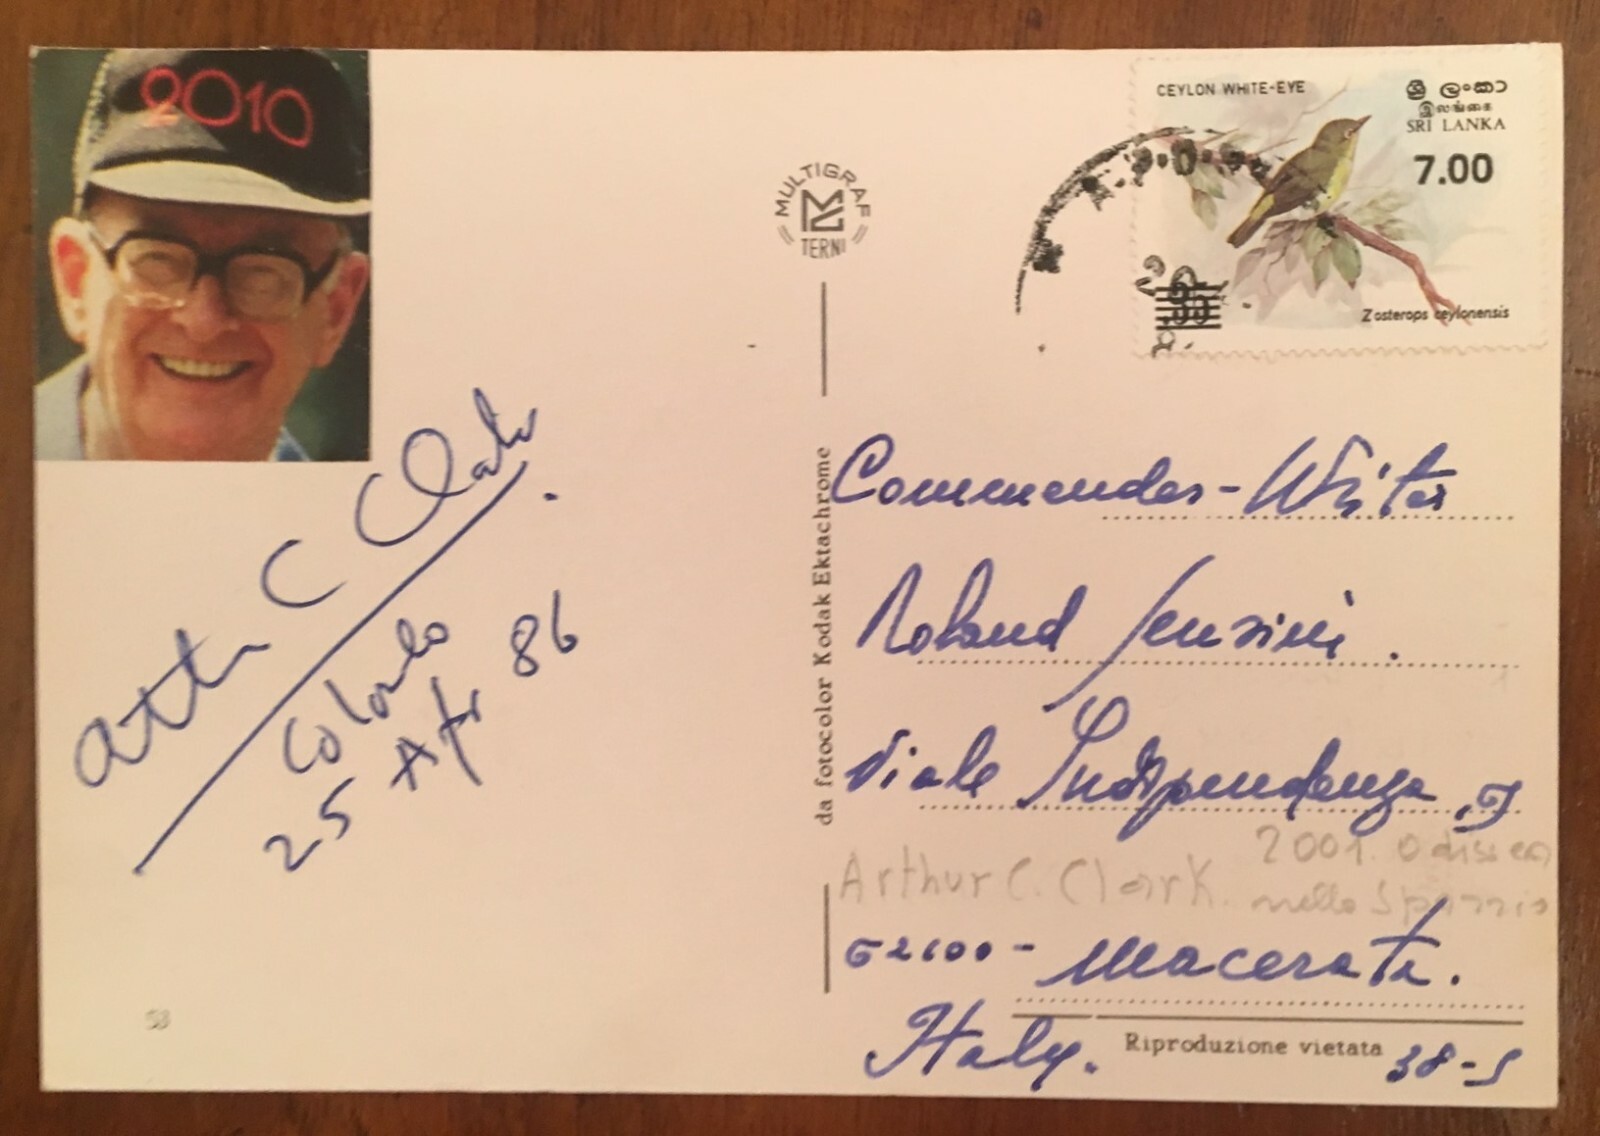 2010
Arthur C Clarke
Colombo
25 Apr 86
MULTIGRAF
TERNI
da fotocolor Kodak Ektachrome
CEYLON WHITE-EYE
ශ්‍රී ලංකා
இலங்கை
SRI LANKA
7.00
Zosterops ceylonensis
Roland
Viale Indipendenza
Arthur C. Clark. 2001. Odissea
nello Spazzio
62100 - Macerata.
Italy.
Riproduzione vietata 38-S
53